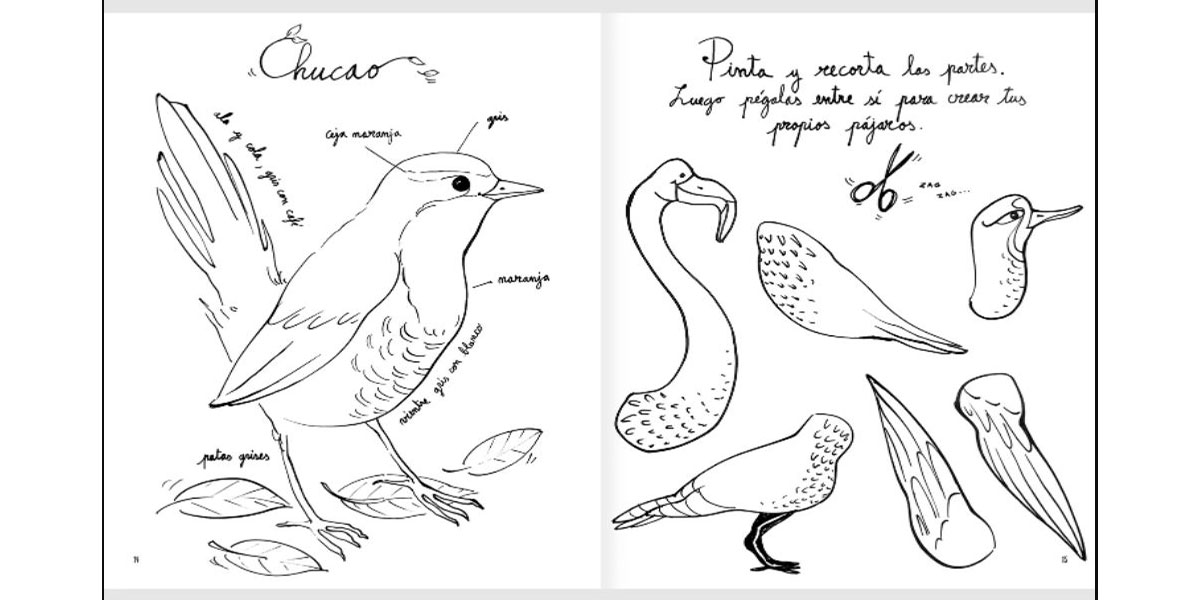 Chucao
ala y cola, gris con café
ceja naranja
gris
naranja
vientre gris con blanco
patas grises
14
Pinta y recorta las partes.
Luego pégalas entre sí para crear tus
propios pájaros.
ZAG
ZAG...
15